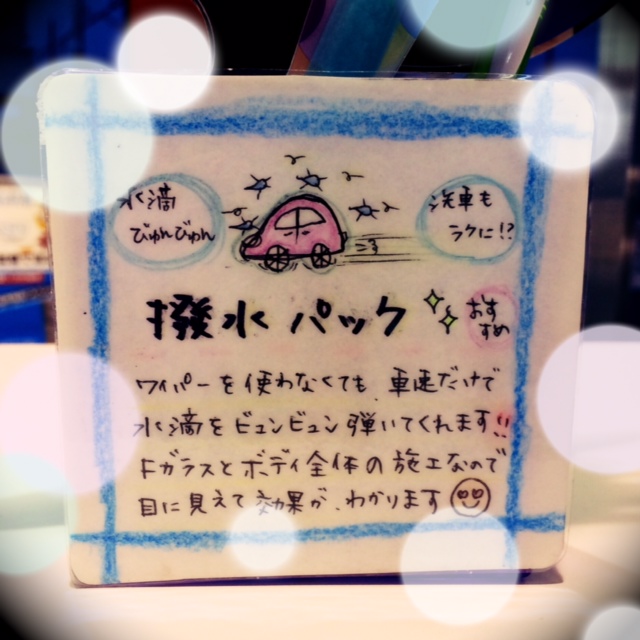 水滴
びゅんびゅん
洗車も
ラクに!?
撥水パック
おす
すめ
ワイパーを使わなくても、車速だけで
水滴をビュンビュン弾いてくれます!!
Fガラスとボディ全体の施工なので
目に見えて効果が、わかります